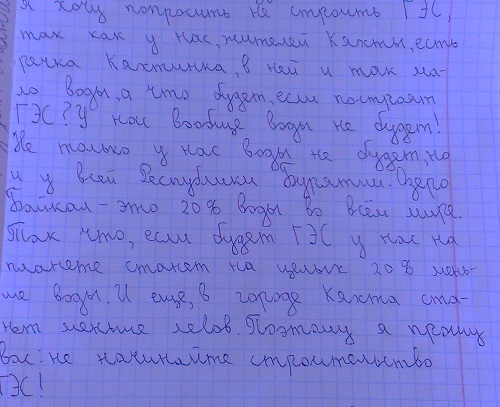 я хочу попросить не строить ГЭС,
так как у нас, жителей Кяхты, есть
речка Кяхтинка, в ней и так ма-
ло воды, а что будет, если построят
ГЭС? У нас вообще воды не будет!
Не только у нас воды не будет, но
и у всей Республики Бурятии. Озеро
Байкал - это 20% воды во всём мире.
Так что, если будет ГЭС у нас на
планете станет на целых 20% мень-
ше воды. И еще, в городе Кяхта ста-
нет меньше лесов. Поэтому я прошу
вас: не начинайте строительство
ГЭС!